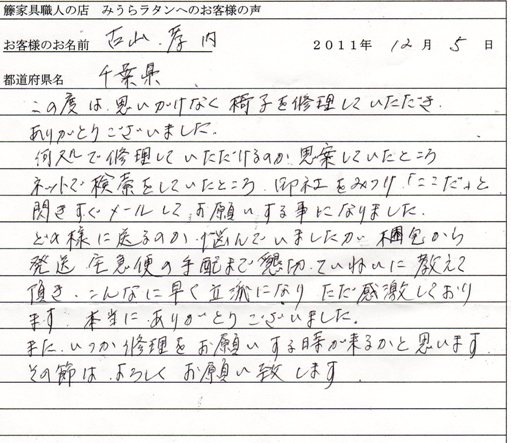 籐家具職人の店　みうらラタンへのお客様の声
お客様のお名前　古山　孝内　2011年 12月 5日
都道府県名　千葉県
この度は、思いがけなく椅子を修理していただき、
ありがとうございました。
何処で修理していただけるのか、思案していたところ
ネットで検索をしていたところ、御社をみつけ、「ここだ」と
閃きすぐメールして、お願いする事になりました。
どの様に送るのか、悩んでいましたが、梱包から
発送、宅急便の手配まで懇切、ていねいに教えて
頂き、こんなに早く立派になり、ただ感激しており
ます。本当に、ありがとうございました。
また、いつか修理をお願いする時が来るかと思います。
その節は、よろしくお願い致します。